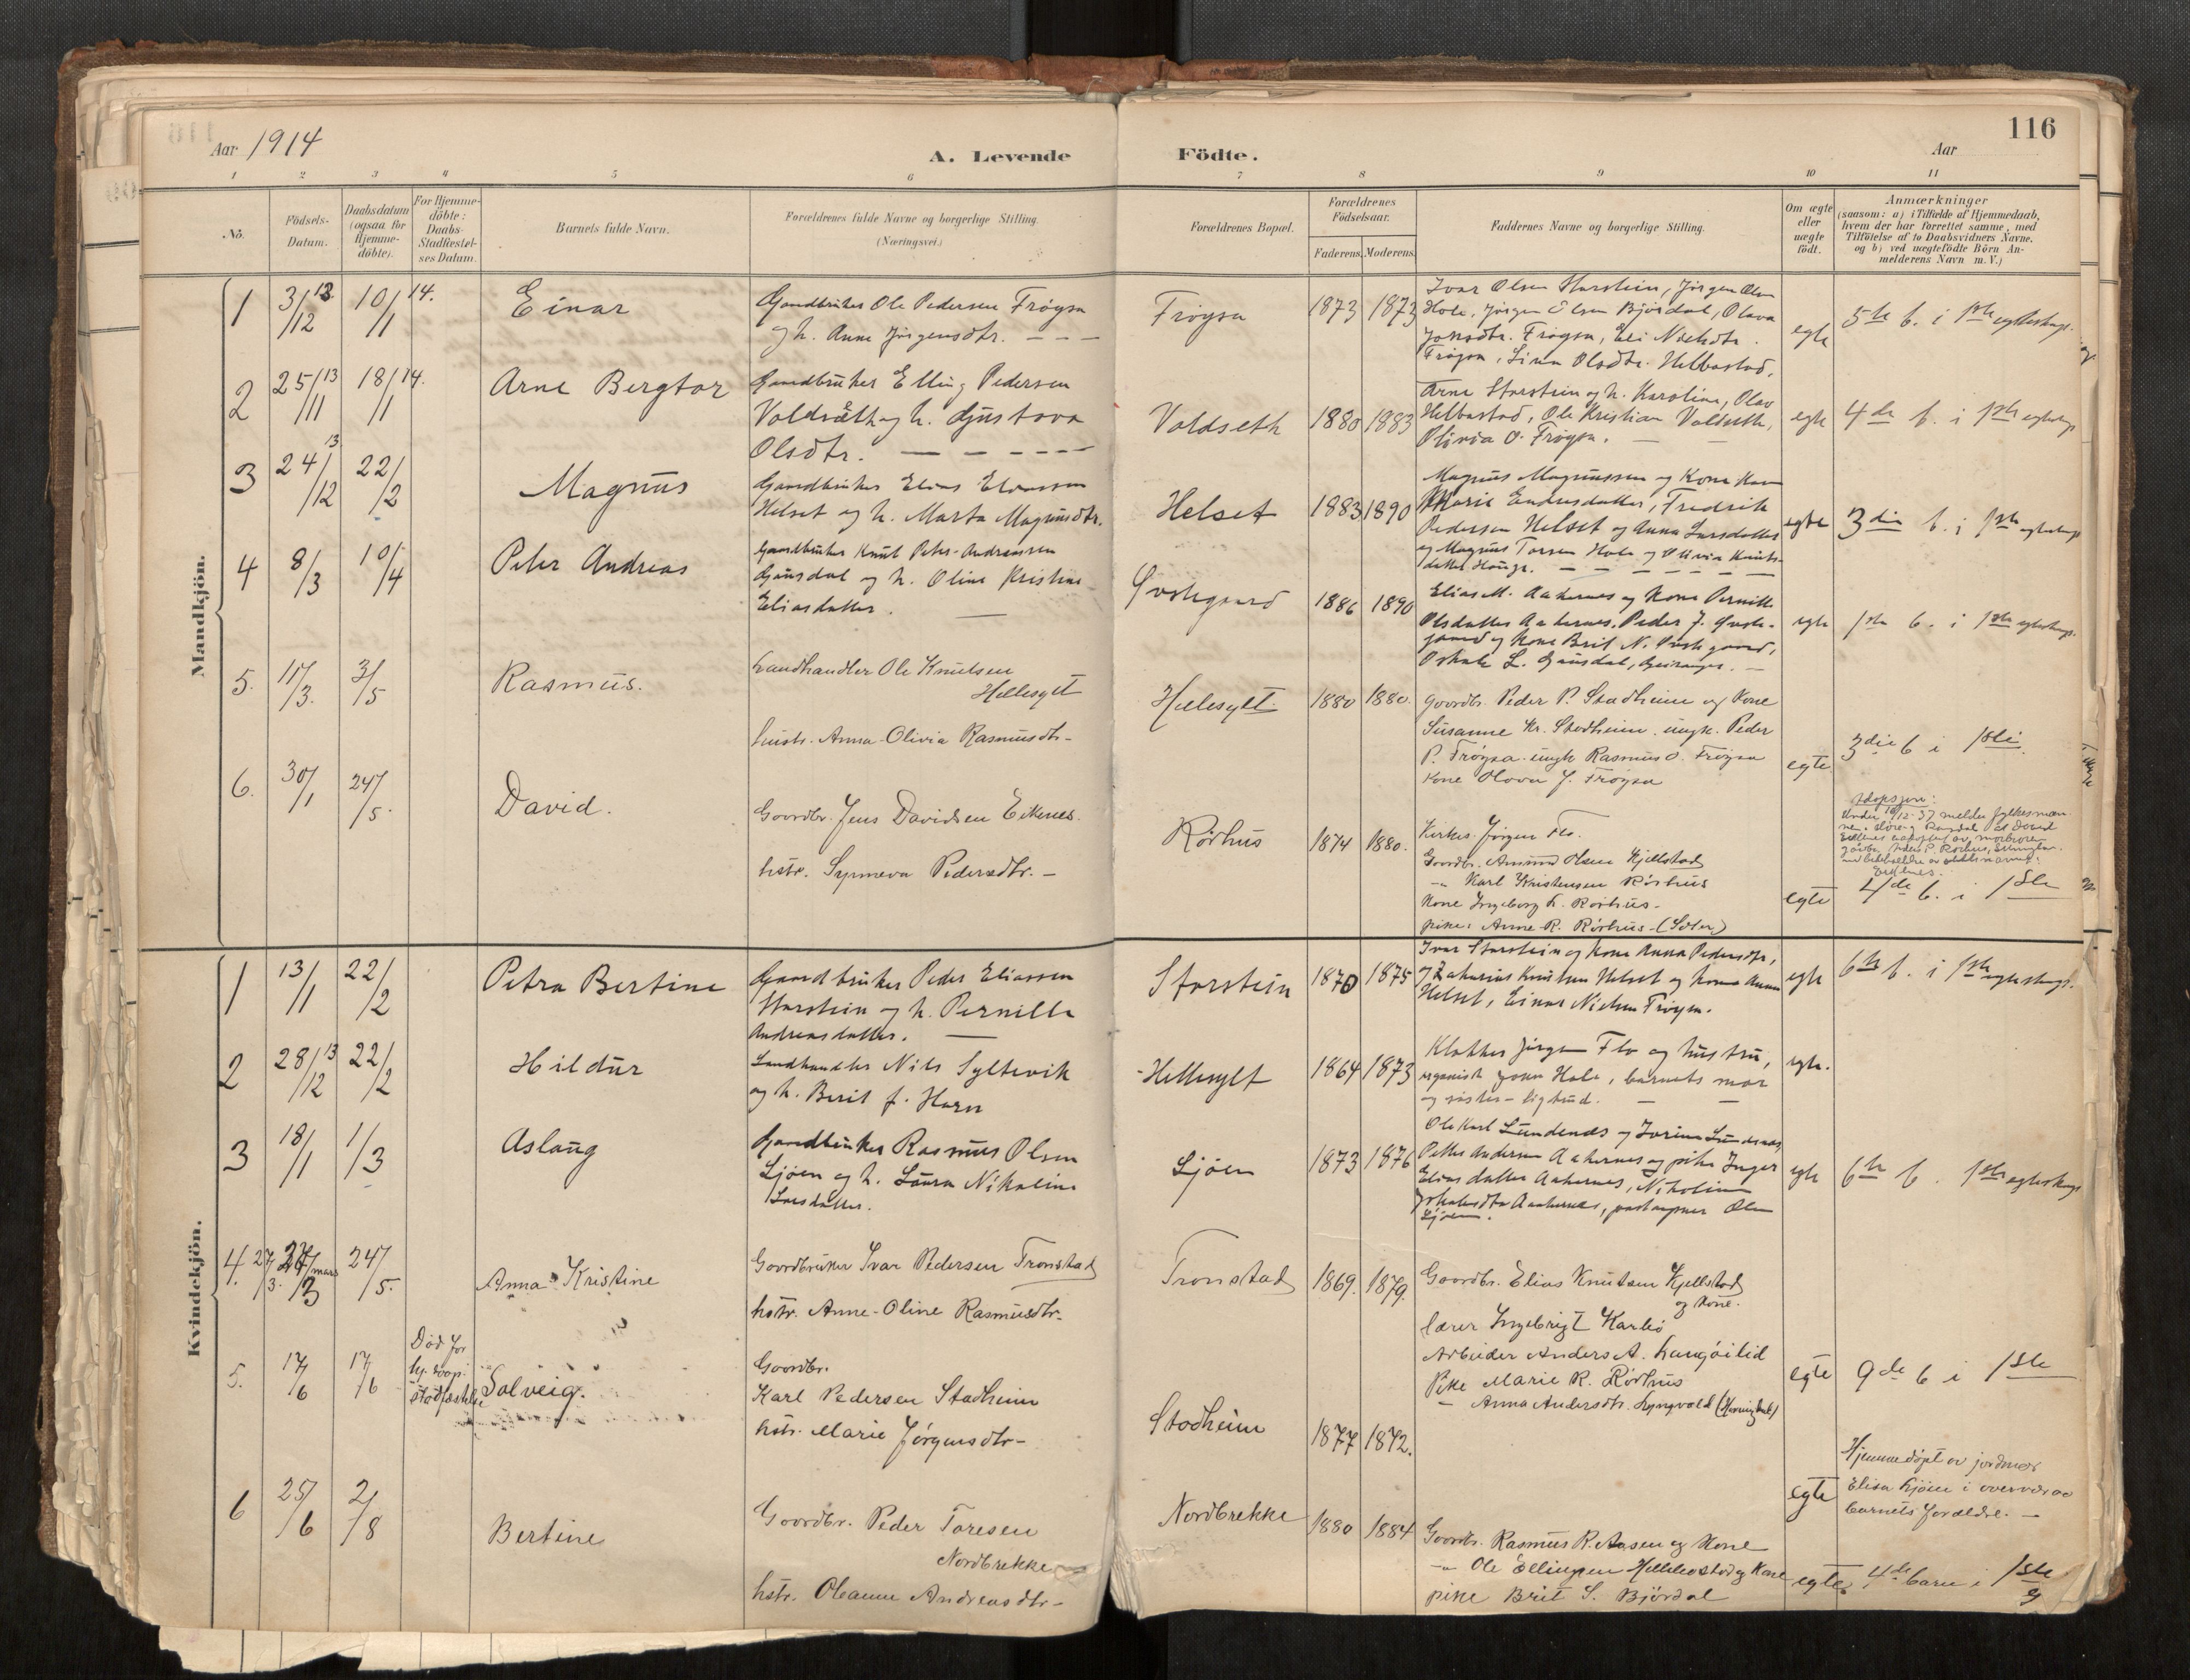 116
Aar 1914
A. Levende
Födte.
Aar
1 2 3 4 5 6 7 8 9 10 11
No.
Födsels-Datum.
Daabsdatum (ogsaa for Hjemme-döbte).
For Hjemme-döbte: Daabs-Stadfæstel-ses Datum.
Barnets fulde Navn.
Forældrenes fulde Navne og borgerlige Stilling. (Næringsvei.)
Forældrenes Bopæl.
Forældrenes Födselsaar.
Faderens. Moderens.
Faddernes Navne og borgerlige Stilling.
Om ægte eller uægte födt.
Anmærkninger
(saasom: a) i Tilfælde af Hjemmedaab,
hvem der har forrettet samme, med
Tilföielse af to Daabsvidners Navne,
og b) ved uægtefödte Börn An-
melderens Navn m. V.)
Mandkjön.
1 3/12 13 10/1 14. Einar
Gaardbruker Ole Pedersen Frøysa
og h. Anne Jørgensdtr. - - -
Frøysa 1873 1873
Ivar Olsen Storstein, Jørgen Olsen
Hole, Jørgen Elsen Bjørdal, Olava
Jonsdtr. Frøysa, Eli Nielsdtr.
Frøysa, Lina Olsdtr. Hellbostad.
egte
5te b. i 1ste egteskap.
2 25/11 13 18/1 14. Arne Bergtor
Gaardbruker Elling Pedersen
Voldsæth og h. Gjustava
Olsdtr. - - - - -
Voldseth 1880 1883
Arne Storstein og h. Karoline, Olav
Helbostad, Ole Kristian Voldseth,
Olivia O. Frøysa. -
egte
4de b. i 1ste egteskap
3 24/12 13 22/2 Magnus
Gaardbruker Elias Eliassen
Helset og h. Marta Magnusdtr.
Helset 1883 1890
Magnus Magnussen og Kone Karen
Marie Endresdatter, Fredrik
Pedersen Helset og Anna Larsdatter
og Magnus Torsen Hole og Olivia Knuts-
datter Hauge. - - - - -
egte
3die b. i 1ste egteskap
4 8/3 10/4 Peter Andreas
Gaardbruker Knut Peter-Andreassen
Gausdal og h. Oline Kristine
Eliasdatter.
Øvstegaard 1886 1890
Elias M. Aakernes og Kone Pernille
Olsdatter Aakernes, Peder J. Øvste-
gaard og Kone Brit N. Øvstegaard,
Oskale L. Gausdal, Geiranger. -
egte
1ste b. i 1ste egteskap.
5. 11/3. 3/5 Rasmus.
Landhandler Ole Knutsen
Hellesylt
hustr. Anna-Olivia Rasmusdtr-
Hellesylt 1880 1880.
Gaardbr. Peder P. Stadheim og Kone
Susanne Kr. Stadheim. ungk. Peder
P. Frøysa. ungk Rasmus O. Frøysa
Kone Olava J. Frøysa
egte
3die b i 1ste
6. 30/1 24/5. David.
Gaardbr. Jens Davidsen Eikenes.
hstr. Synneva Pedersdtr. -
Rørhus 1874 1880.
Kirkes. Jørgen Flo.
Gaardbr. Amund Olsen Kjellstad
-"- Karl Kristensen Rørhus
Kone Ingeborg K. Rørhus-
pike: Anne R. Rørhus-(Sæter)
egte
Adopsjon:
Under 10/12-37 melder fylkesman-
nen i Møre og Romsdal at David
Eikenes adoptert av morbroren
gårdbr. Peder P. Rørhus,
med bibehold av slektsnavnet:
Eikenes.
4de b. i 1ste
Kvindekjön.
1 13/1 22/2 Petra Bertine
Gaardbruker Peder Eliassen
Storstein og h. Pernille
Andreasdatter. -
Storstein 1870 1875
Ivar Storstein og Kone Anna Pedersdtr,
og Zakarias Knutsen Helset og Kone Anna
Helset, Einar Nielsen Frøysa.
egte
6te b. i 1ste egteskap.
2 28/12 13 22/2 Hildur
Landhandler Nils Syltevik
og h. Berit f. Horn
Hellesylt 1864 1873
Klokker Jørgen Flo og hustru,
organist Jonn Hole, barnets mor
og søster-Sigtrud. - -
egte.
3 18/1 1/3 Aslaug
Gaardbruker Rasmus Olsen
Ljøen og h. Laura Nikoline
Larsdatter.
Ljøen 1873 1876
Ole Karl Lundenæs og Jorina Lundenæs,
Petter Andersen Aakernes og pike Inger
Eliasdatter Aakernes, Nikoline
Aakernes, postaapner Olsen
Ljøen.
egte
6te b. 1ste egteskap
4. 27/3. 27/3 mars 24/5. Anna-Kristine
Gaardbruker Ivar Pedersen Tronstad
hstr. Anne-Oline Rasmusdtr-
Tronstad 1869. 1879.
Gaardbr. Elias Knutsen Kjellstad
og Kone.
lærer Ingebrigt Karbø
Arbeider Anders A. Langøilid
Pike Marie R. Rørhus
- Anna Andersdtr. Lyngvold (Hornigdal)
egte
9de b i 1ste
5. 17/6 17/6
Død før
stadfæstelse
Solveig.
Gaardbr.
Karl Pedersen Stadheim
hstr. Marie Jørgensdtr-
Stadheim 1877 1872.
egte
Hjemmedøpt av jordmor
Elisa Ljøen i overvær av
barnets forældre. -
6 25/6 2/8 Bertine
Gaardbr. Peder Toresen
Nordbrekke
hstr. Oleanne Andreasdtr-
Nordbrekke 1880 1884
Gaardbr. Rasmus R. Aasen og Kone
-"- Ole Ellingsen Hellebostad og Kone
pike Brit S. Bjørdal
egte
4de barn i 1ste